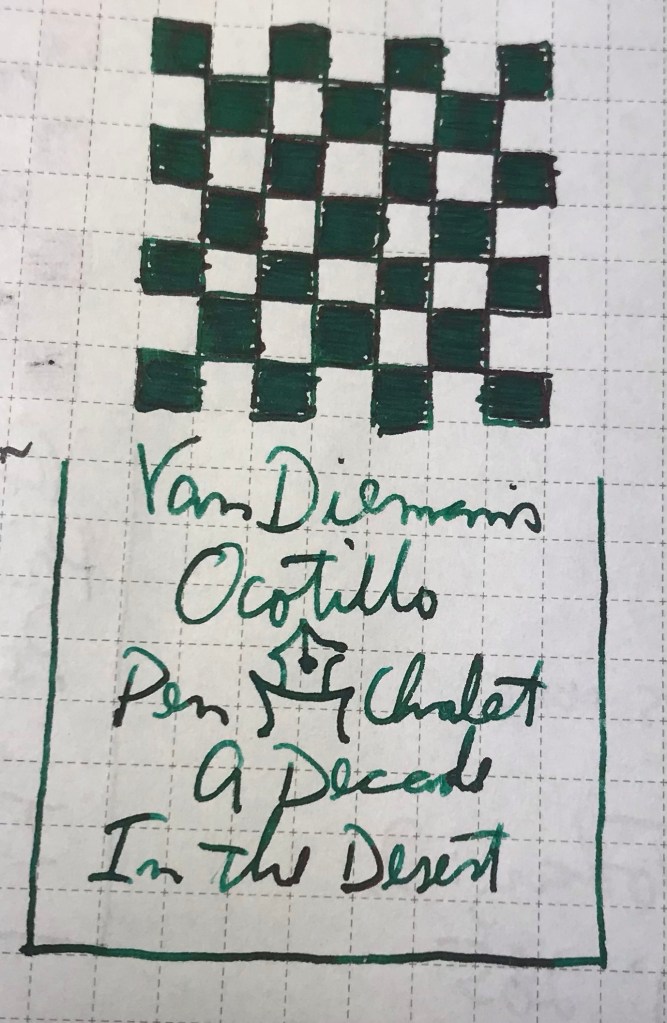 Van Diemans
Ocotillo
Pen Chalet
A Decade
In the Desert